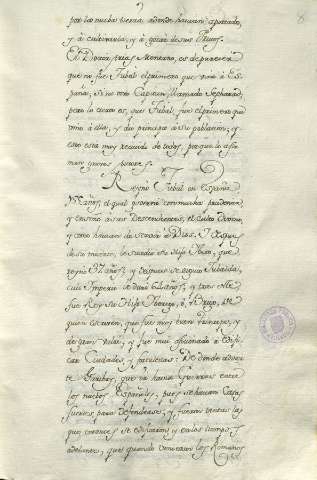 por la mucha tierra adonde havian aportado,
y à cultivarla, y à gozar de sus frutos.
El Doctor Arias Montano, es de parecer
que no fue Tubal el primero que vino à Es
paña, si no otro Capitan llamado Sepharad,
pero lo cierto es, que Tubal, fue el primero que
vino à ella, y dio principio a su poblacion, y
esto esta muy recivido de todos, porque lo afir
man graves autores.
Reynò Tubal en España
años, el qual governò con mucha prudencia,
y enseñò à sus Descendientes, el culto Divino,
y como havian de servir à Dios. Y despues
de su muerte, le sucediò su Hijo Ibero, que
reynò años, y despues se siguiò Jubalda,
cuio Imperio durò años, y tras èl
fue Rey su Hijo Brigo, ò, Brigo, de
quien escriven, que fue muy buen Principe, y
de gran Valor, y fue mui aficionado à edifi
car Ciudades, y fortalezas: De donde advier
te Garibay, que ya havia Guerras entre
los nuestros Españoles, pues se hacian Casas
fuertes para defenderse; y fueron tantas las
que entonces se edificaron, y en los tiempos
adelante, que quando vinieron los Romanos